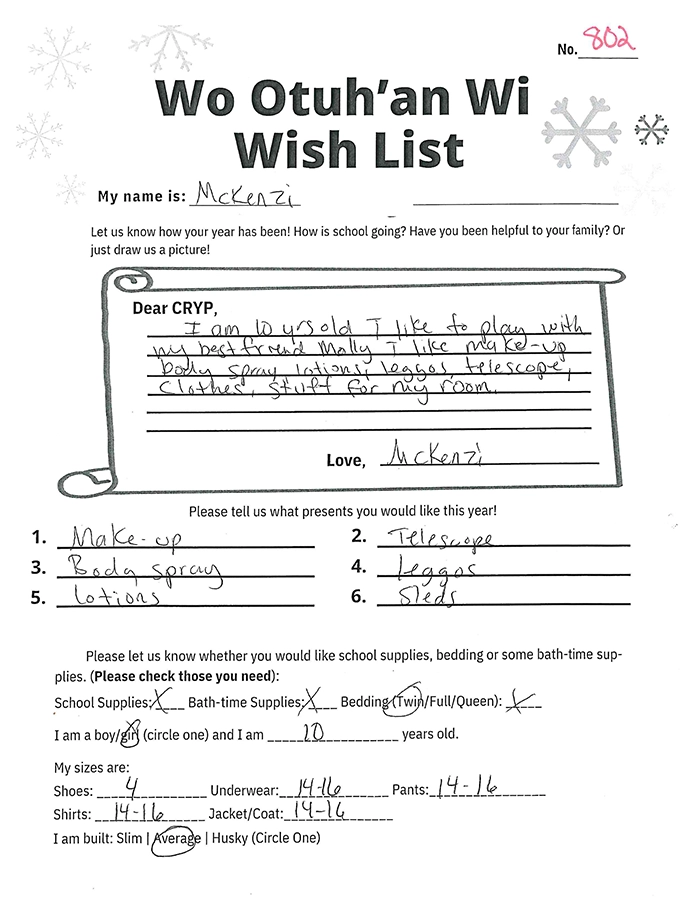 No. 802
Wo Otuh'an Wi
Wish List
My name is: McKenzi
Let us know how your year has been! How is school going? Have you been helpful to your family? Or
just draw us a picture!
Dear CRYP,
I am 10 yrs old I like to play with
my best friend Molly I like make-up
body spray lotions, leggos, telescope,
Clothes, stuff for my room.
Love, McKenzi
Please tell us what presents you would like this year!
1. Make-up 2. Telescope
3. Body spray 4. Leggos
5. Lotions 6. Sleds
Please let us know whether you would like school supplies, bedding or some bath-time sup-
plies. (Please check those you need):
School Supplies: X Bath-time Supplies: X Bedding (Twin/Full/Queen): X
I am a boy/girl (circle one) and I am 10 years old.
My sizes are:
Shoes: 4 Underwear: 14-16 Pants: 14-16
Shirts: 14-16 Jacket/Coat: 14-16
I am built: Slim | Average | Husky (Circle One)